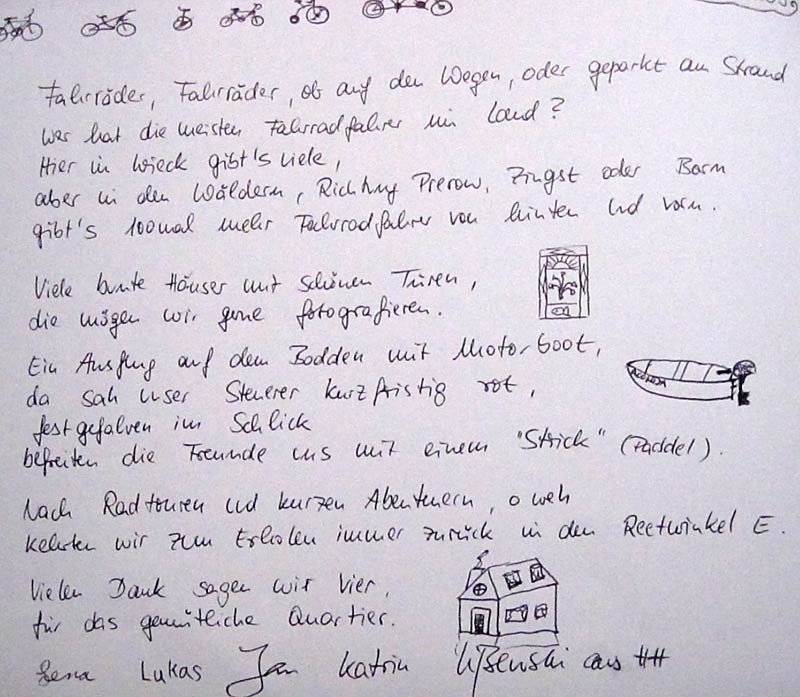 Fahrräder, Fahrräder, ob auf den Wegen, oder geparkt am Strand
wer hat die meisten Fahrradfahrer im Land?
Hier in Wieck gibt's viele,
aber in den Wäldern, Richtung Prerow, Zingst oder Barn
gibt's 100mal mehr Fahrradfahrer von hinten und vorn.
Viele bunte Häuser mit schönen Türen,
die mögen wir gerne fotografieren.
Ein Ausflug auf dem Bodden mit Motorboot,
da sah unser Steuerer kurzfristig rot,
festgefahren im Schlick
befreiten die Freunde uns mit einem "Strick" (Paddel).
Nach Radtouren und kurzen Abenteuern, o weh
kehrten wir zum Erholen immer zurück in den Reetwinkel E.
Vielen Dank sagen wir Vier,
für das gemütliche Quartier.
Lena Lukas Jan Katrin aus HH